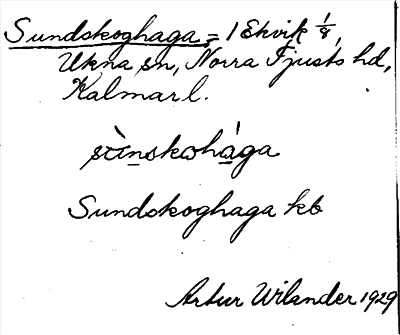 Sundskoghaga = 1 Ekvik 1/8,
Ukna sn, Norra Tjusts hd,
Kalmar l.
Sundskoghaga kb
Artur Wilander 1929